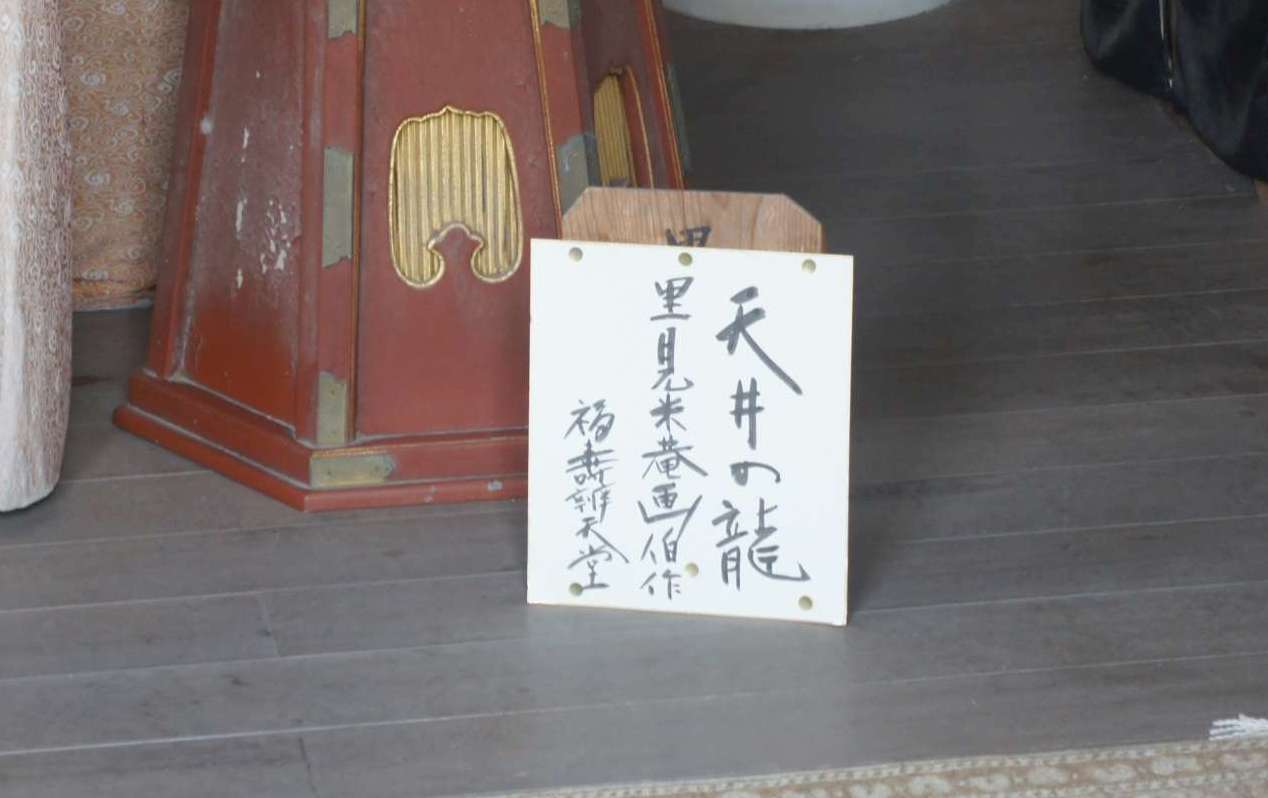 天井の龍
里見米菴画伯作
福壽辨天堂
里